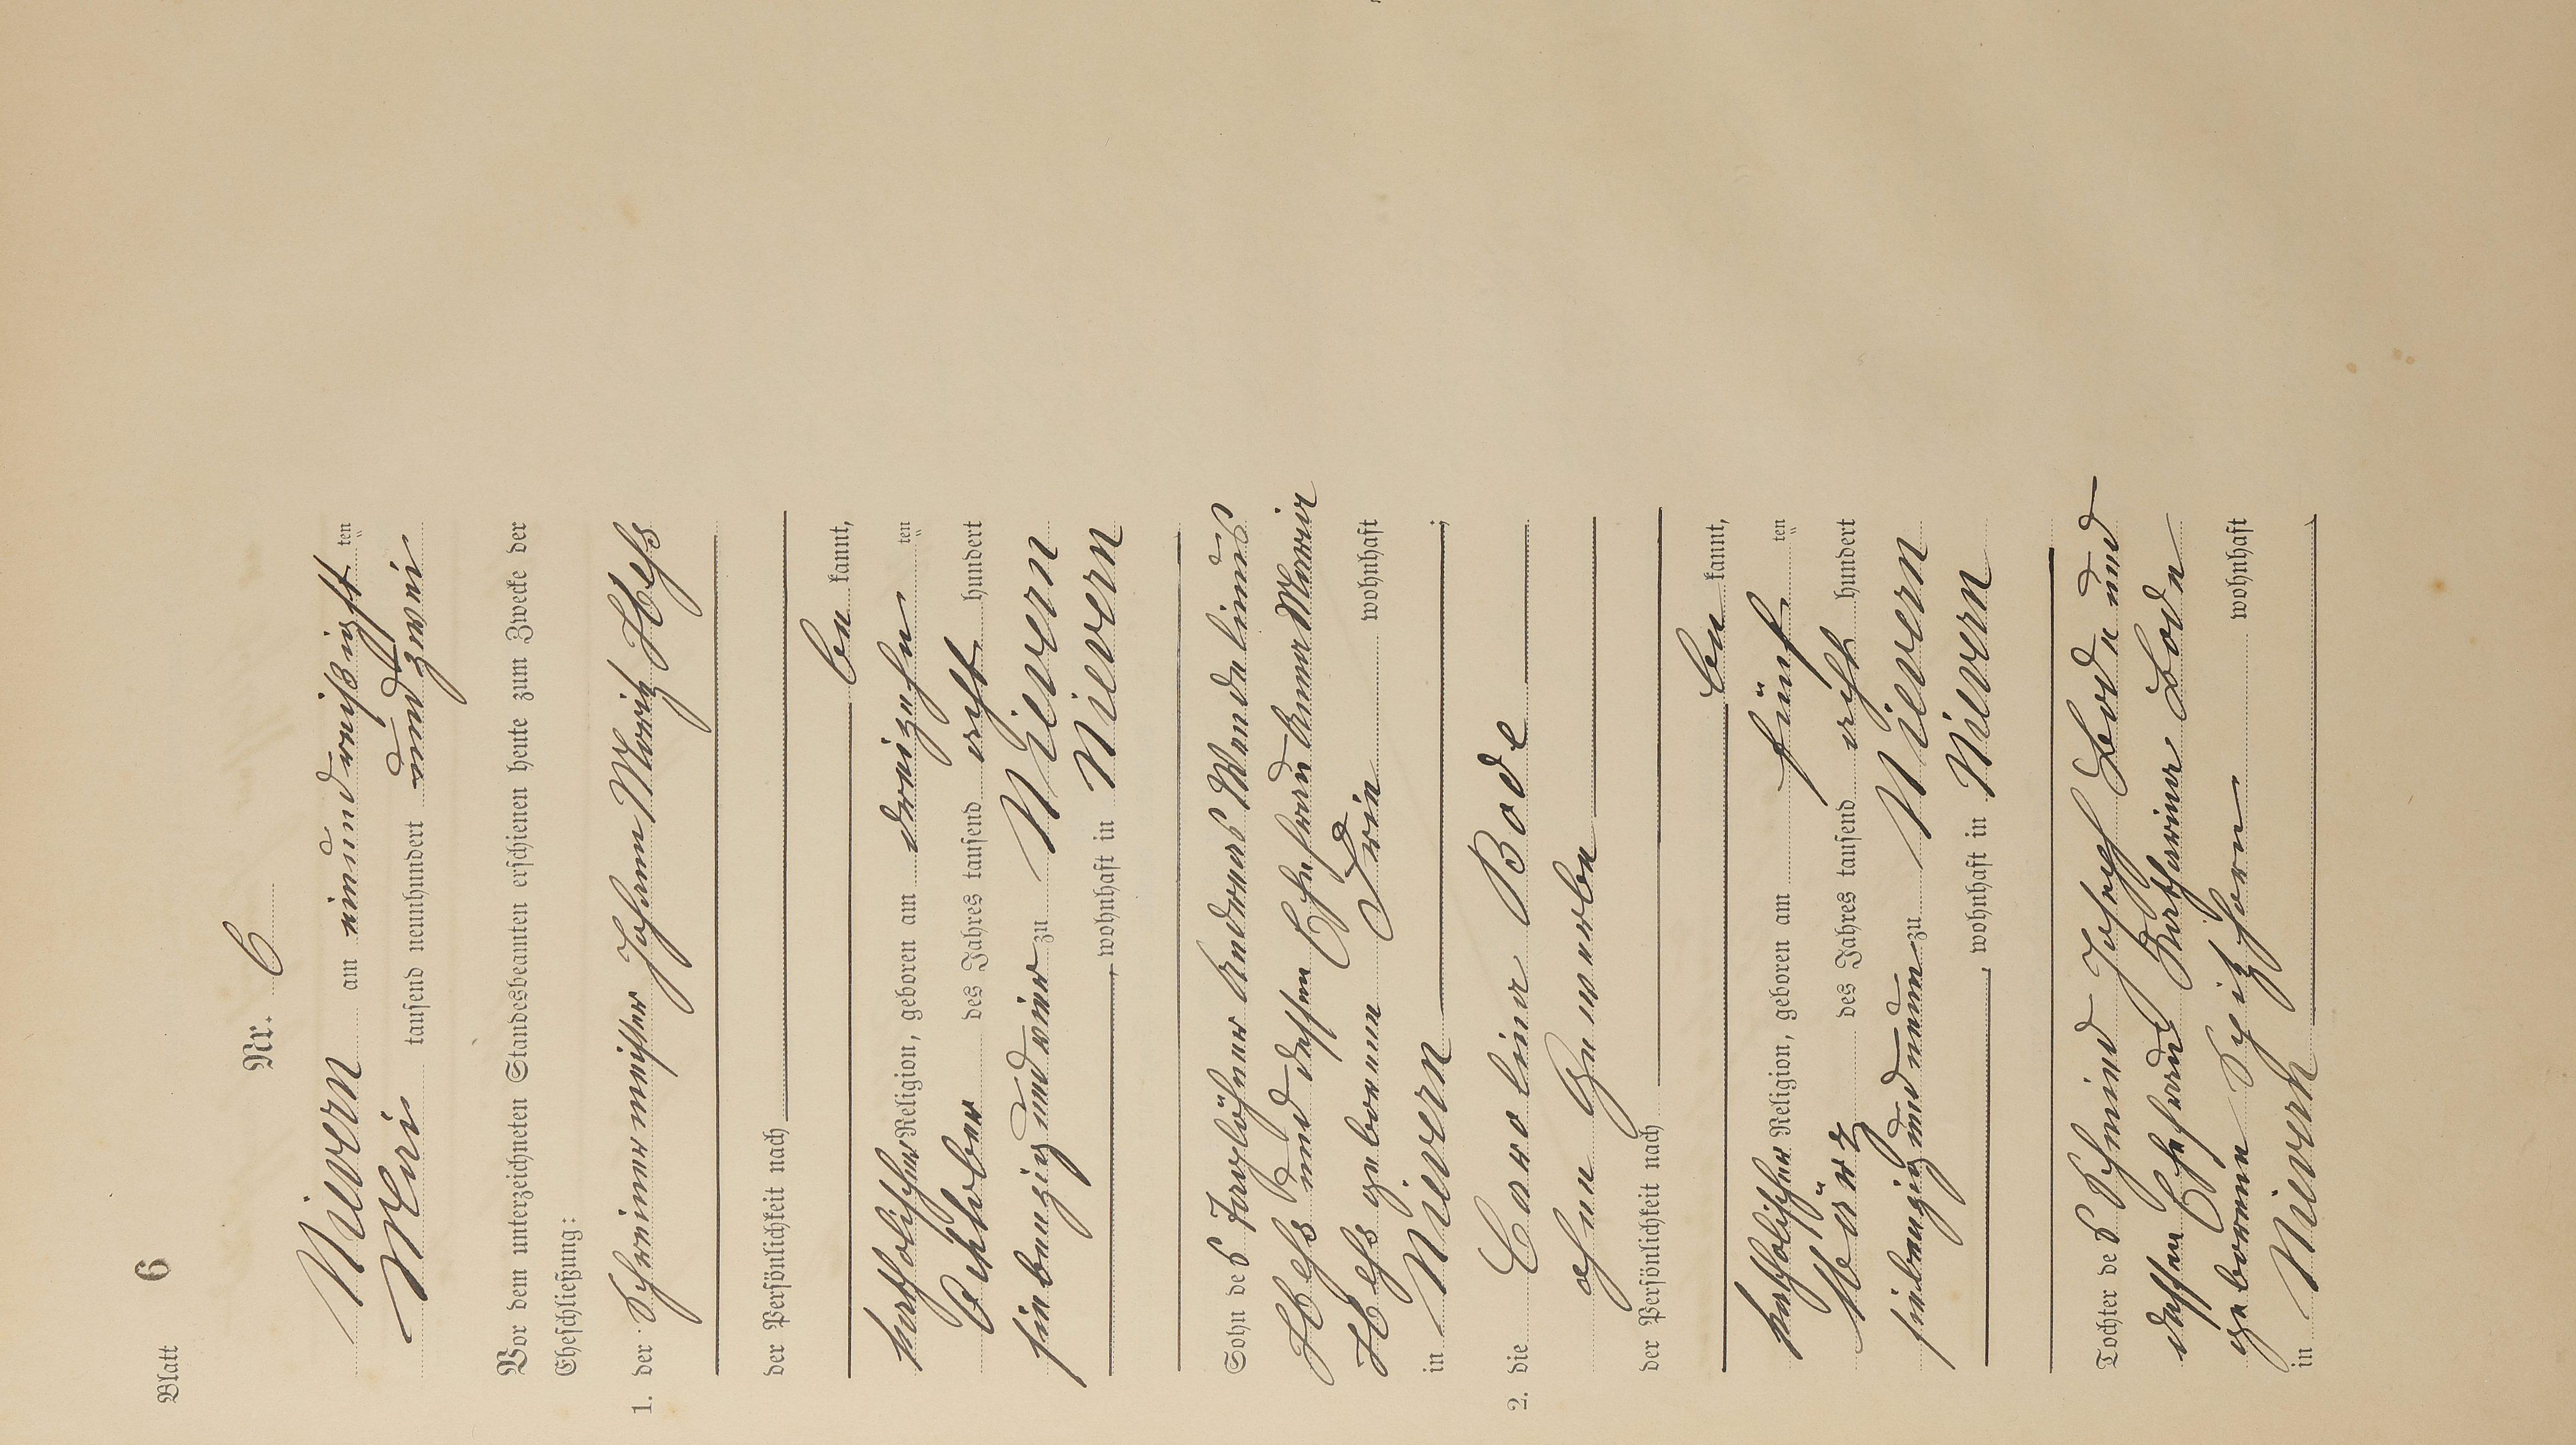 Blatt 6
Nr. 6
Nievern am einunddreißigst ten
Mai tausend neunhundert und zwei
Vor dem unterzeichneten Standesbeamten erschienen heute zum Zwecke der
Eheschließung:
1. der Schreinermeister Johann Moritz Heß
der Persönlichkeit nach
be kannt,
katholischer Religion, geboren am dreizehn ten
Oktober des Jahres tausend acht hundert
siebenzig und vier zu Nievern
, wohnhaft in Nievern
Sohn des Taglöhner Andreas Wendelinus
Heß und dessen Ehefrau Anna Maria
Heß geborene wohnhaft
in Nievern ;
2. die Carolina Bode
ohne Gewerbe
der Persönlichkeit nach
be kannt,
katholischer Religion, geboren am fünf ten
März des Jahres tausend acht hundert
siebenzig und neun zu Nievern
, wohnhaft in Nievern
Tochter des Schmied Joseph Bode und
dessen Ehefrau Katharina Bode
geborene Spitzhorn wohnhaft
in Nievern